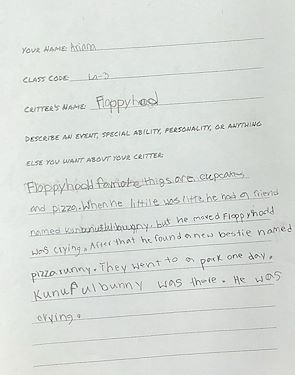 YOUR NAME: Ariam
CLASS CODE: La-D
CRITTER'S NAME: Floppyhood
DESCRIBE AN EVENT, SPECIAL ABILITY, PERSONALITY, OR ANYTHING
ELSE YOU WANT ABOUT YOUR CRITTER:
Floppyhodd things are cupcakes
and pizza. When he little was litre he had a friend
named but he moved Floppyhodd
was crying. After that he found a new bestie named
pizzarunny. They went to a park one day.
Kunufulbunny was there. He was
crying.